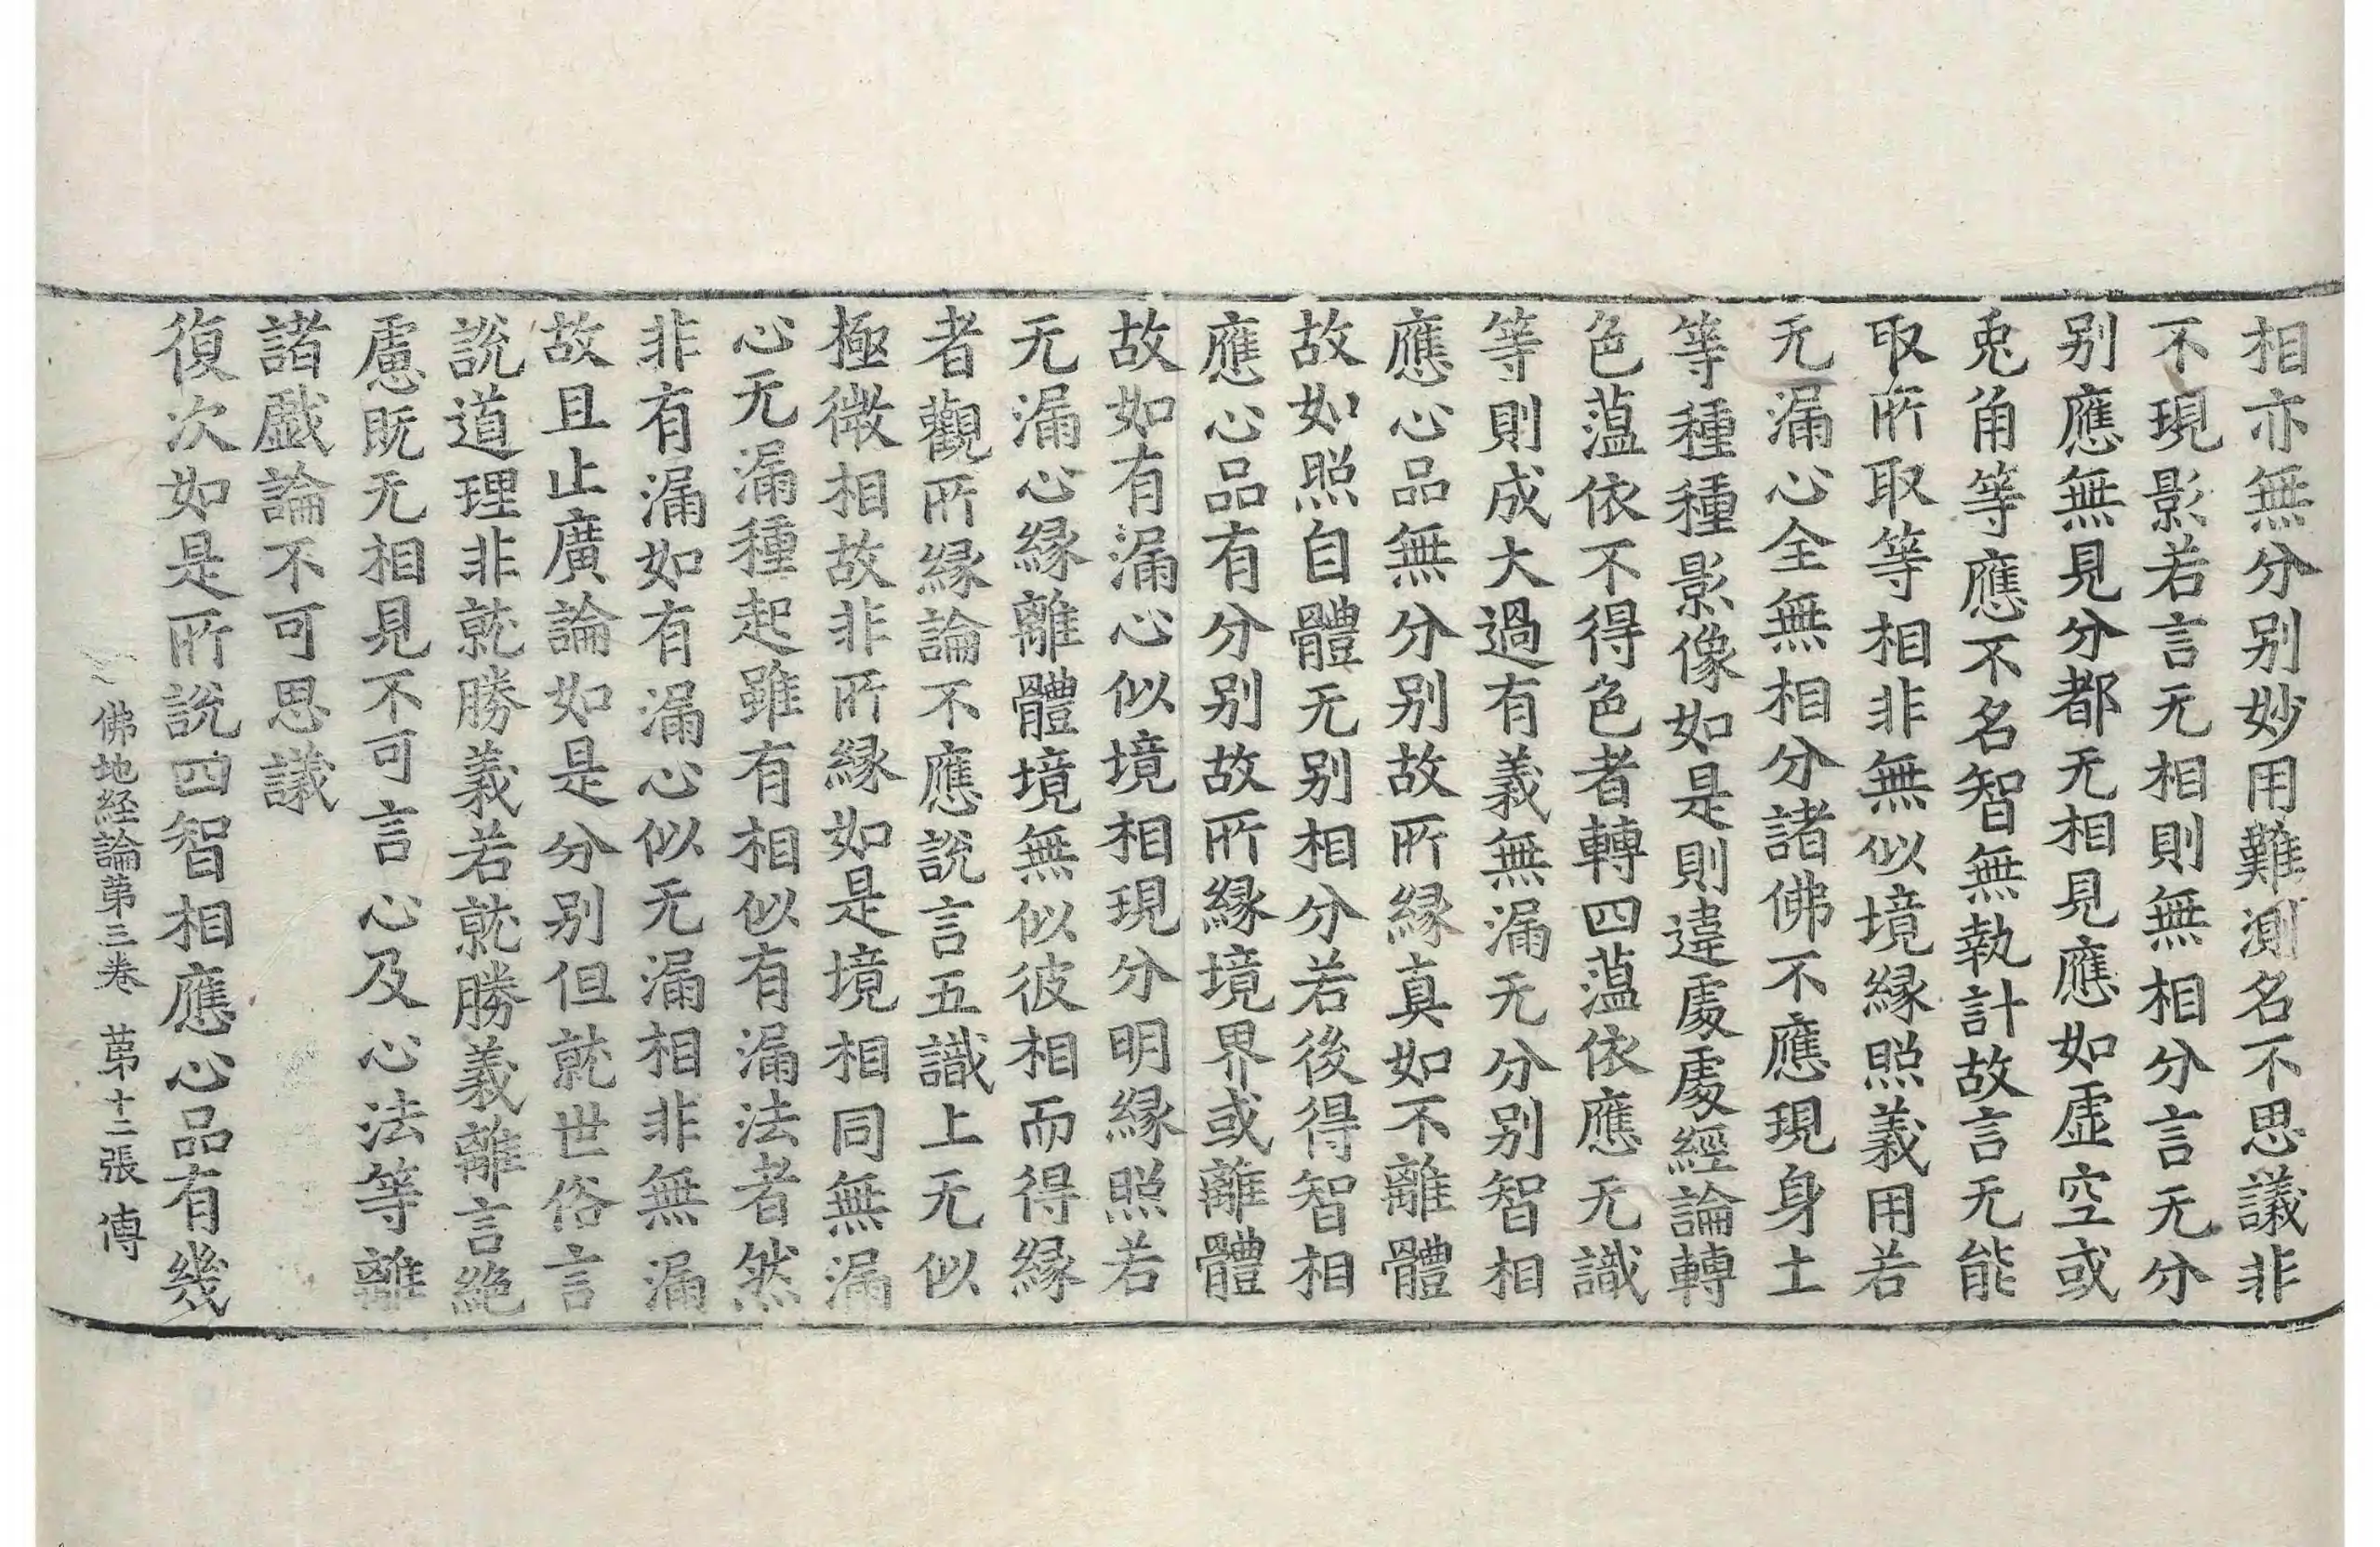 相亦無分别妙用難測名不思議非
不現影若言无相則無相分言无分
别應無見分都无相見應如虛空或
兎角等應不名智無執計故言无能
取所取等相非無似境緣照義用若
无漏心全無相分諸佛不應現身土
等種種影像如是則違處處經論轉
色薀依不得色者轉四薀依應无識
等則成大過有義無漏无分别智相
應心品無分别故所緣真如不離體
故如照自體无别相分若後得智相
應心品有分别故所緣境界或離體
故如有漏心似境相現分明緣照若
无漏心緣離體境無似彼相而得緣
者觀所緣論不應說言五識上无似
極微相故非所緣如是境相同無漏
心无漏種起雖有相似有漏法者然
非有漏如有漏心似无漏相非無漏
故且止廣論如是分别但就世俗言
說道理非就勝義若就勝義離言絶
慮既无相見不可言心及心法等離
諸戲論不可思議
復次如是所說四智相應心品有幾
佛地経論苐三卷 苐十二張 傳